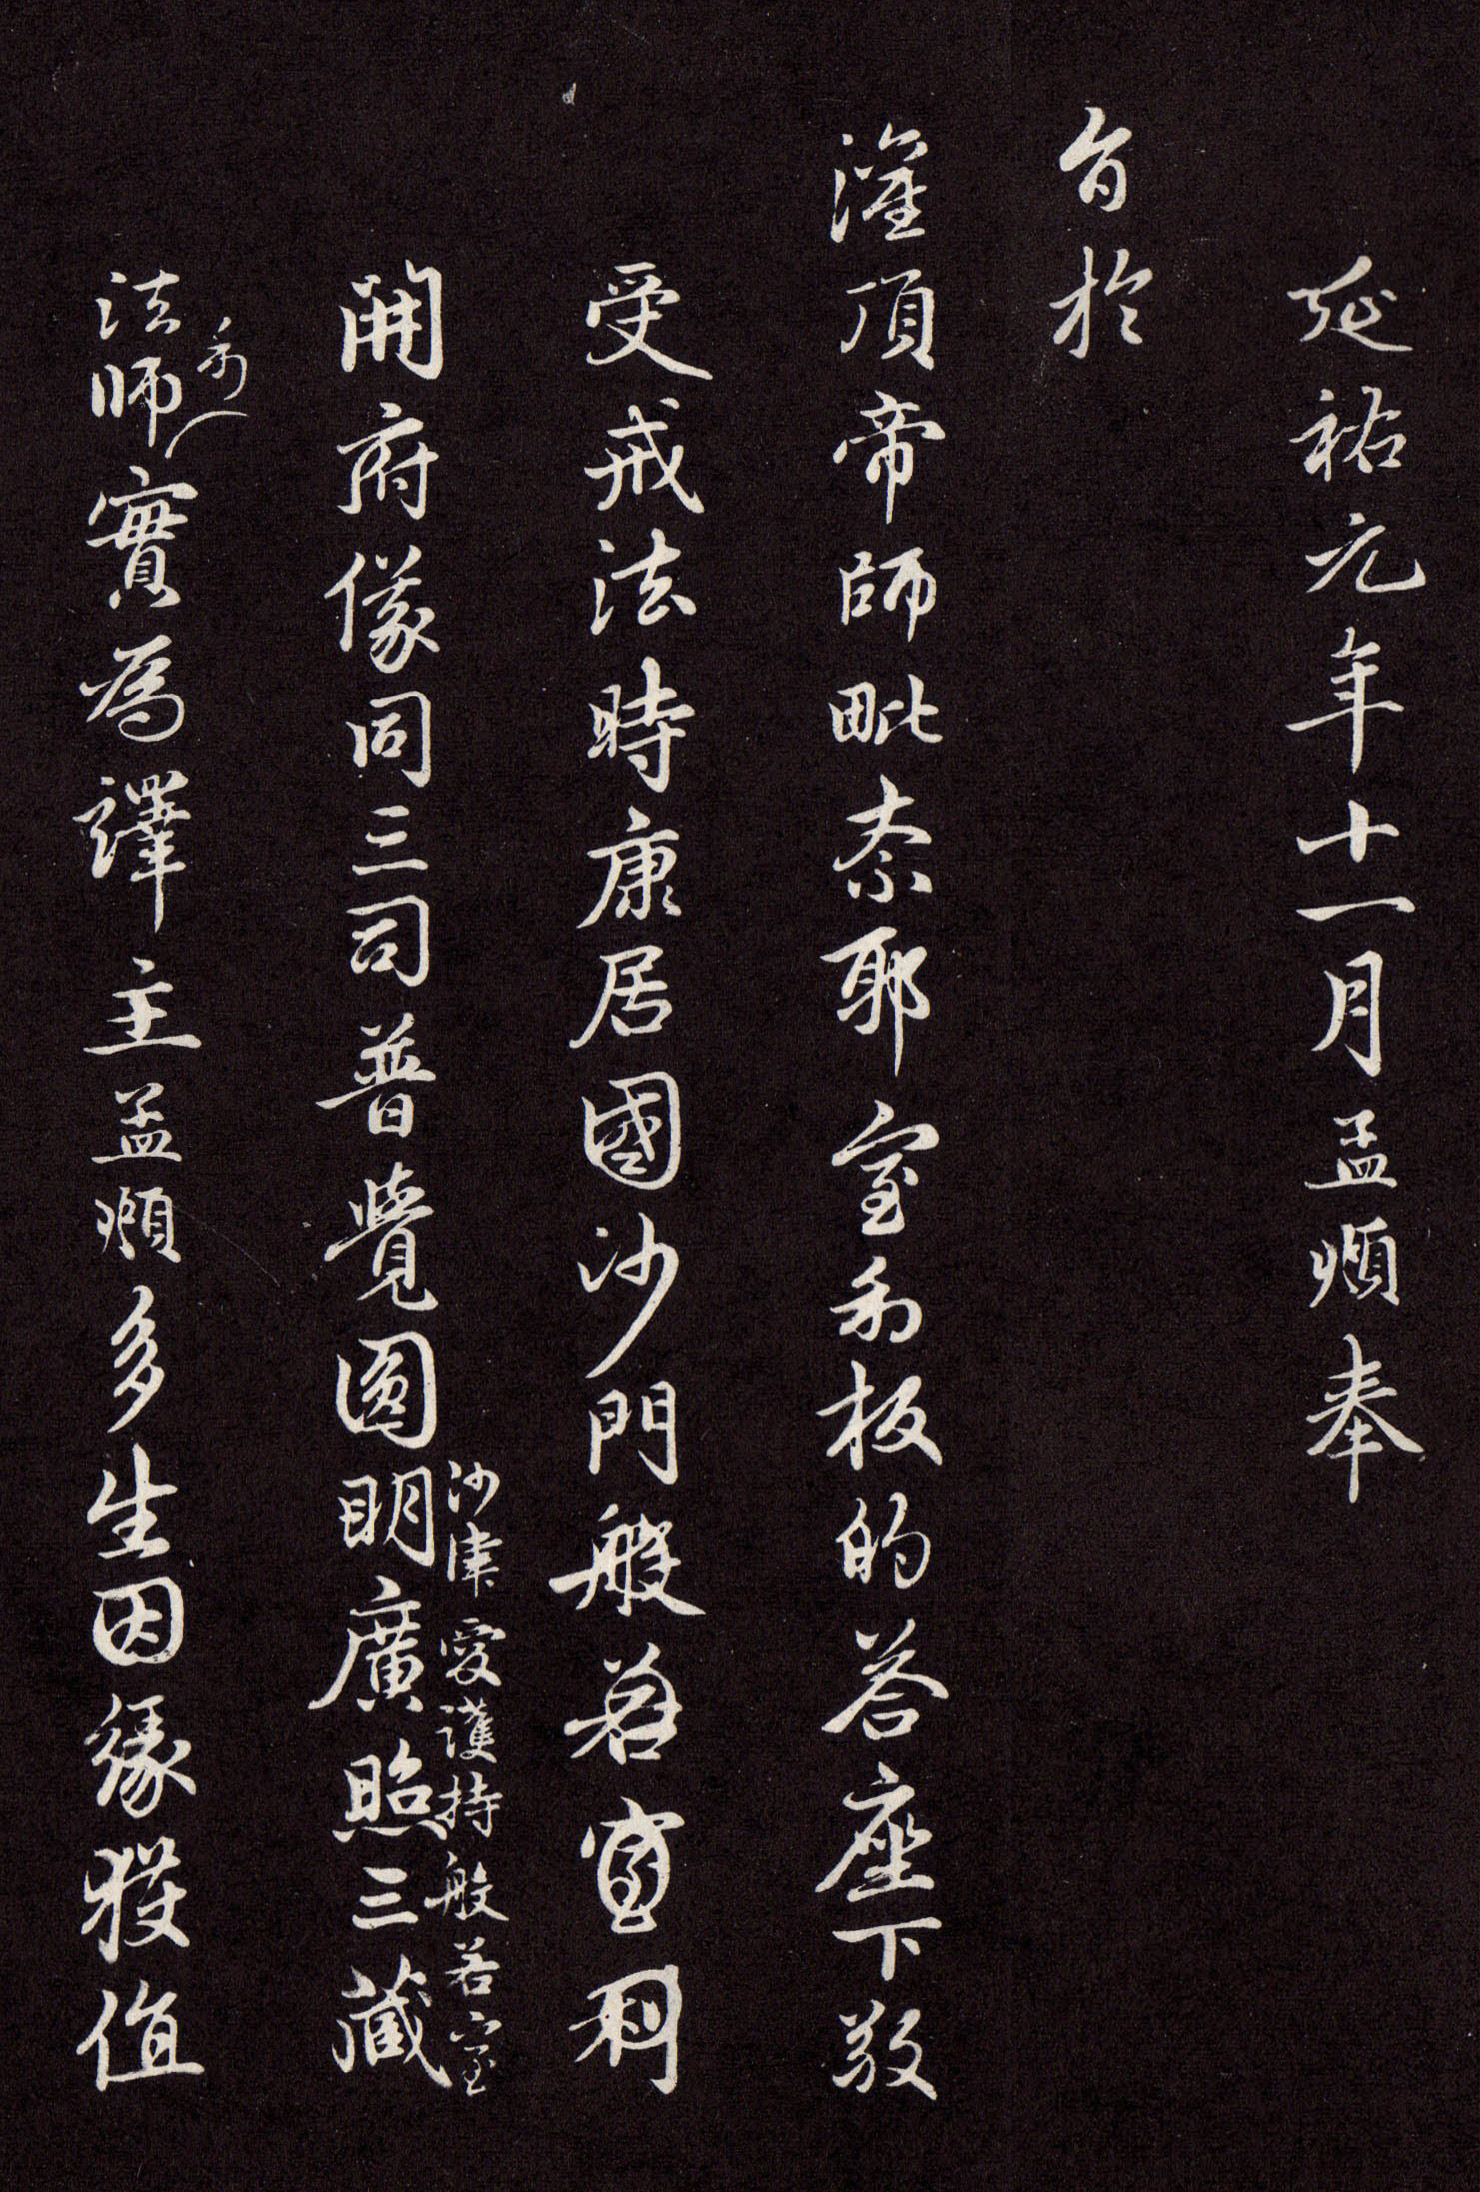 延祐元年十一月孟頫奉
旨於
灌頂帝師毗柰耶室利板的荅座下敬
受戒法時康居國沙門般若室利
開府儀同三司普覺圓明廣照三藏
沙律愛護持般若六室
利
法師實為譯主孟頫多生因緣獲值